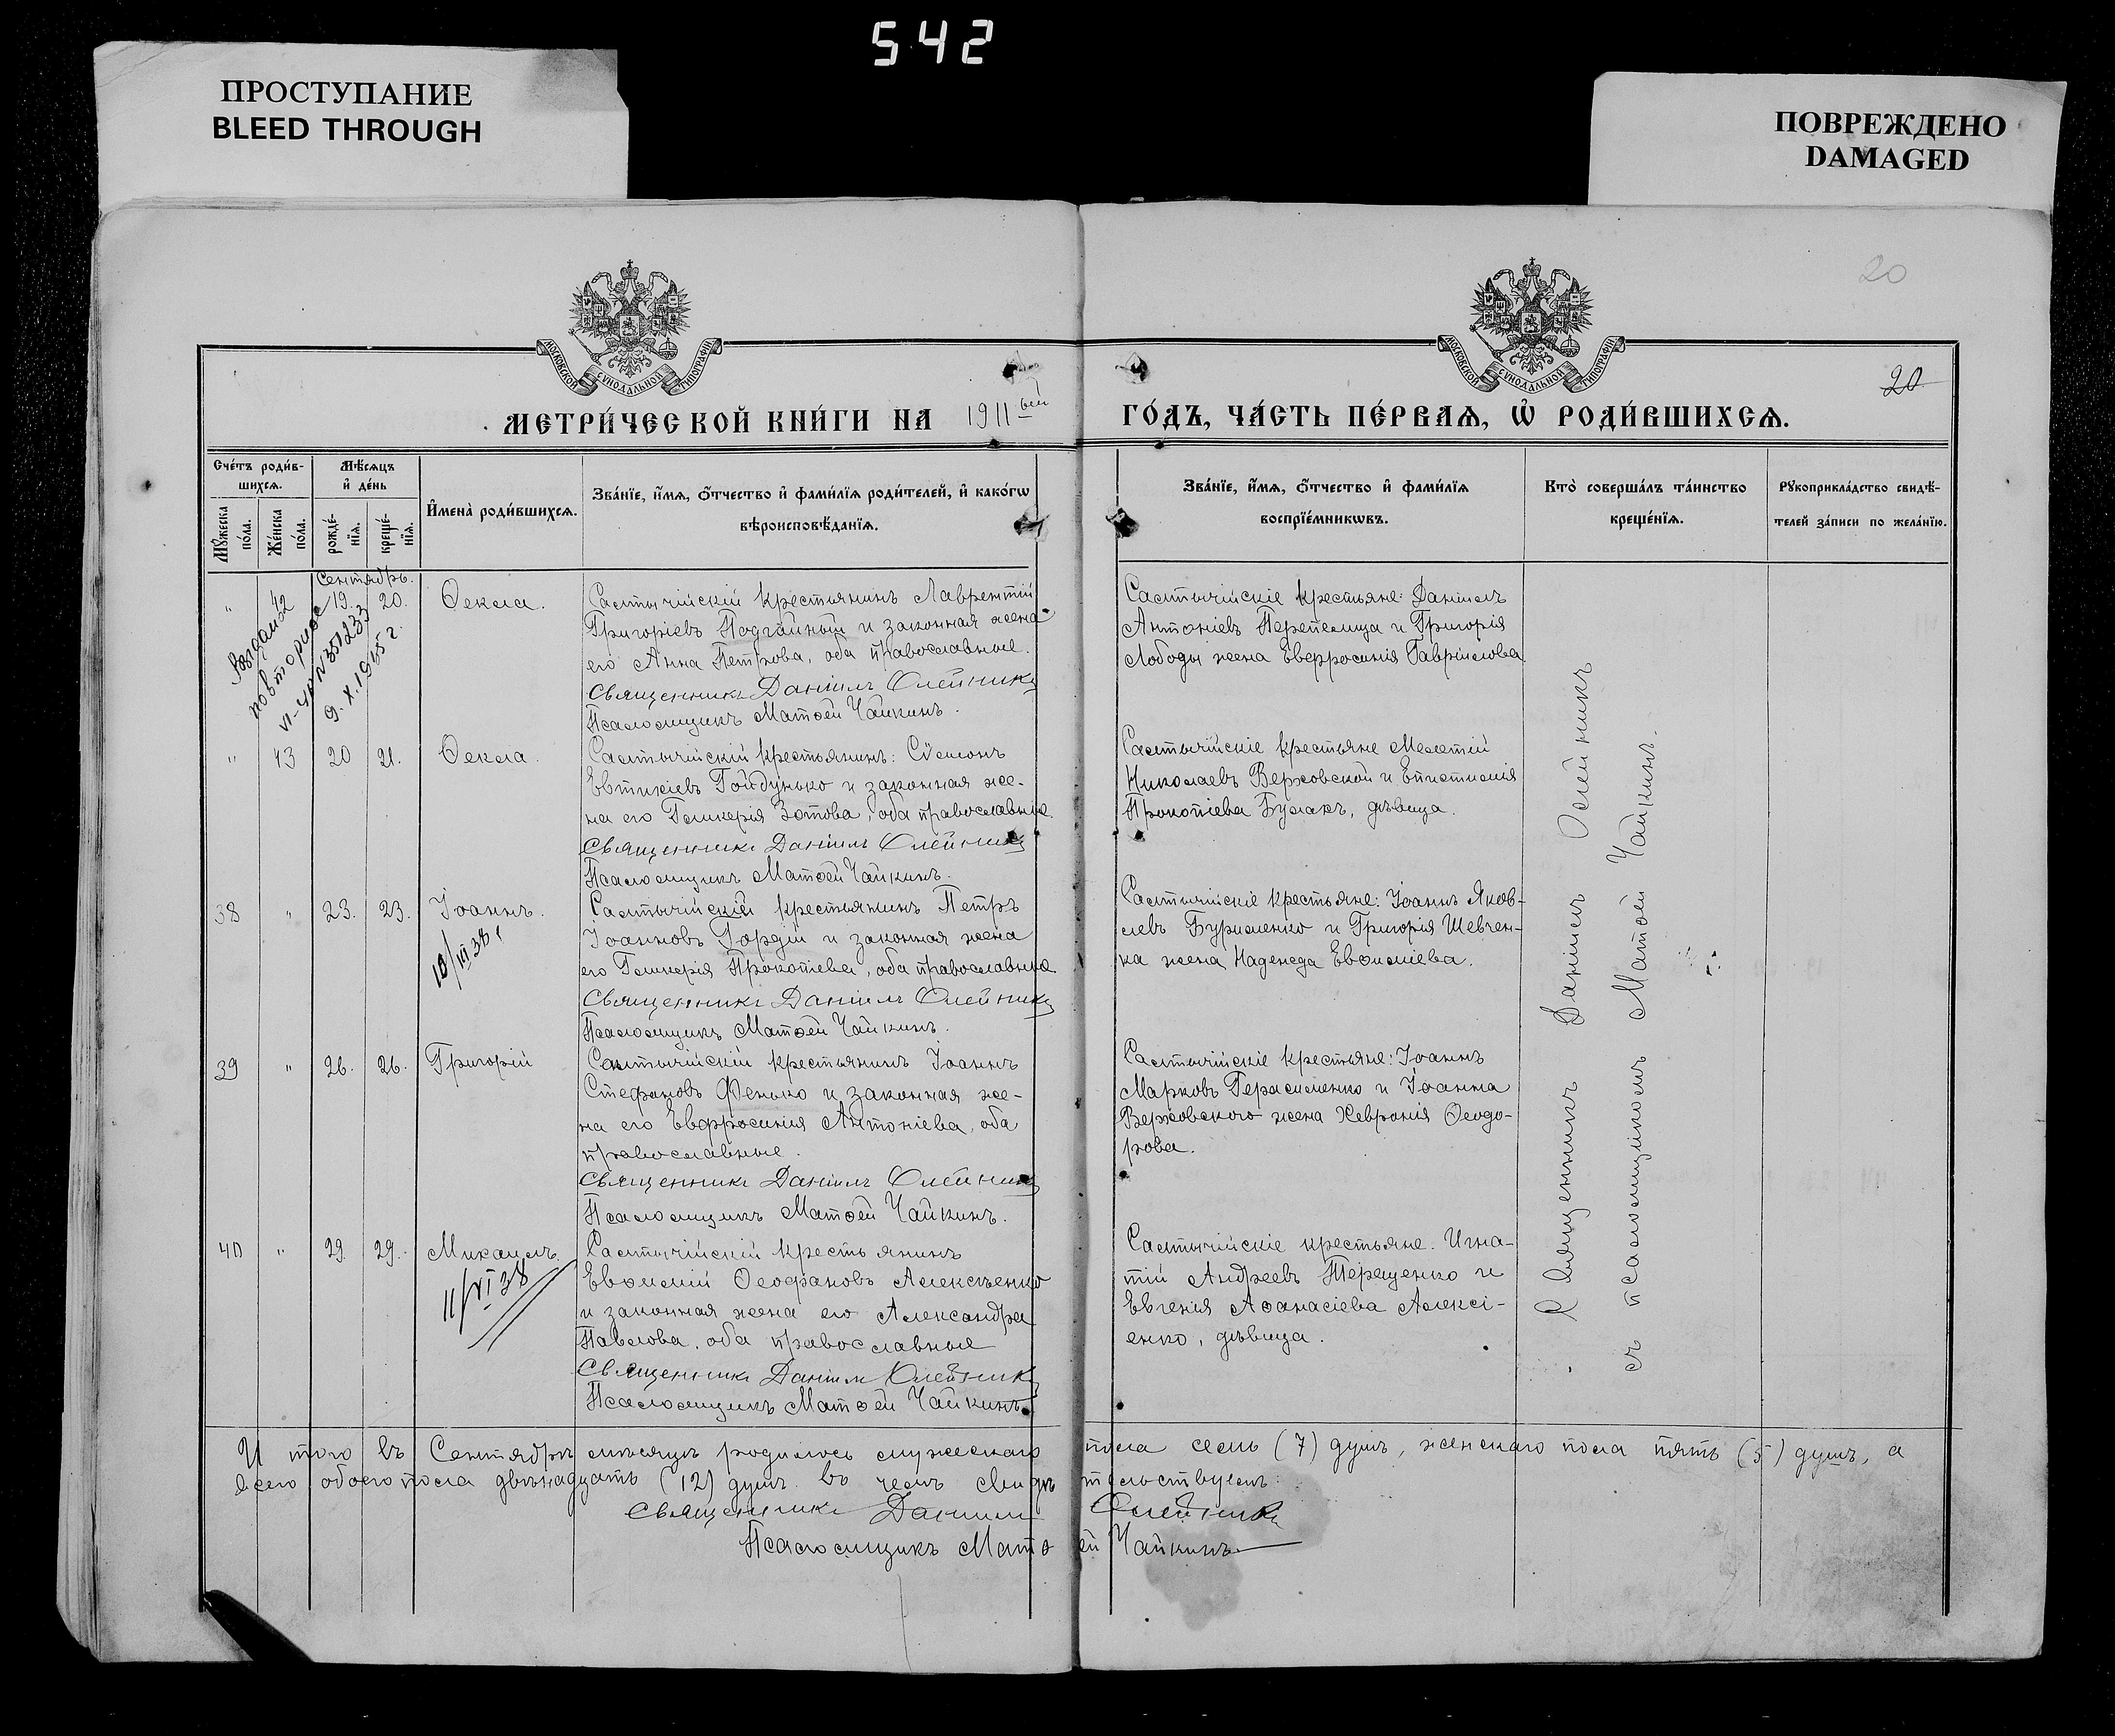 542
ПРОСТУПАНИЕ
BLEED THROUGH
ПОВРЕЖДЕНО
DAMAGED
20
МОСКОВСКОЙ СѴНОДАЛЬНОЙ ТИПОГРАФІИ
МОСКОВСКОЙ СѴНОДАЛЬНОЙ ТИПОГРАФІИ
20
МЕТРИ́ЧЕСКОЙ КНИ́ГИ НА 1911 ый
ГО́ДЪ, ЧА́СТЬ ПЕ́РВАѦ, Ѡ҆ РОДИ́ВШИХСѦ.
Сче́тъ роди́в-
шихсѧ.
Мꙋ́жеска по́ла.
Же́нска по́ла.
Мѣ́сѧцъ
и҆ де́нь
рожде́-
нїѧ.
креще́-
нїѧ.
И҆мена̀ роди́вшихсѧ.
Зва́нїе, и҆́мѧ, ѻ҆́тчество и҆ фами́лїѧ роди́телей, и҆ како́гѡ
вѣроисповѣ́данїѧ.
Зва́нїе, и҆́мѧ, ѻ҆́тчество и҆ фами́лїѧ
воспрїе́мникѡвъ.
Кто̀ соверша́лъ та́инство
креще́нїѧ.
Рꙋкоприкла́дство свидѣ́-
телей за́писи по жела́нїю.
Сентябрь.
" 42 19. 20. Ѳекла.
Салтычійскій крестьянинъ Лаврентій
Григоріевъ Подгайный и законная жена
его Анна Петрова, оба православные.
Священникъ Даніилъ Олейникъ
Псаломщикъ Матѳей Чайкинъ.
Салтычійскіе крестьяне: Даніилъ
Антоніевъ Перепелица и Григорія
Лободы жена Евфросинія Гавріилова
повторное
9. X. 1955 г.
" 43 20 21. Ѳекла.
Салтычійскій крестьянинъ: Сѵмеонъ
Евтихіевъ Гойдунько и законная же-
на его Гликерія Зотова, оба православные.
Священникъ Даніилъ Олейникъ
Псаломщикъ Матѳей Чайкинъ.
Салтычійскіе крестьяне Мелетій
Николаевъ Верховской и Епистимія
Прокопіева Булахъ, дѣвица.
38 " 23. 23. Іоаннъ.
10/III 38 г
Салтычійскій крестьянинъ Петръ
Іоанновъ Гордій и законная жена
его Гликерія Прокопіева, оба православные
Священникъ Даніилъ Олейникъ
Псаломщикъ Матѳей Чайкинъ.
Салтычійскіе крестьяне: Іоаннъ Яков-
левъ Бурименко и Григорія Шевчен-
ка жена Надежда Евѳиміева.
39 " 26. 26. Григорій
Салтычійскій крестьянинъ Іоаннъ
Стефановъ Фенько и законная же-
на его Евфросинія Антоніева, оба
православные.
Священникъ Даніилъ Олейникъ
Псаломщикъ Матѳей Чайкинъ.
Салтычійскіе крестьяне: Іоаннъ
Марковъ Герасименко и Іоанна
Верховского жена Хевронія Ѳеодо-
рова.
40 " 29 29. Михаилъ
11/VI 38
Салтычійскій крестьянинъ
Евѳимій Ѳеофановъ Алексѣенко
и законная жена его Александра
Павлова, оба православные
Священникъ Даніилъ Олейникъ
Псаломщикъ Матѳей Чайкинъ.
Салтычійскіе крестьяне. Игна-
тій Андреевъ Терещенко и
Евгенія Аѳанасіева Алексі-
енко, дѣвица.
Священникъ Даніилъ Олейникъ
съ псаломщикомъ Матѳей Чайкинъ.
И того въ Сентябрѣ мѣсяцѣ родилось мужескаго пола семь (7) душъ, женскаго пола пять (5) душъ, а
всего обоего пола двѣнадцать (12) душъ. Въ чемъ свидѣтельствуемъ:
Священникъ Даніилъ Олейникъ
Псаломщикъ Матѳей Чайкинъ